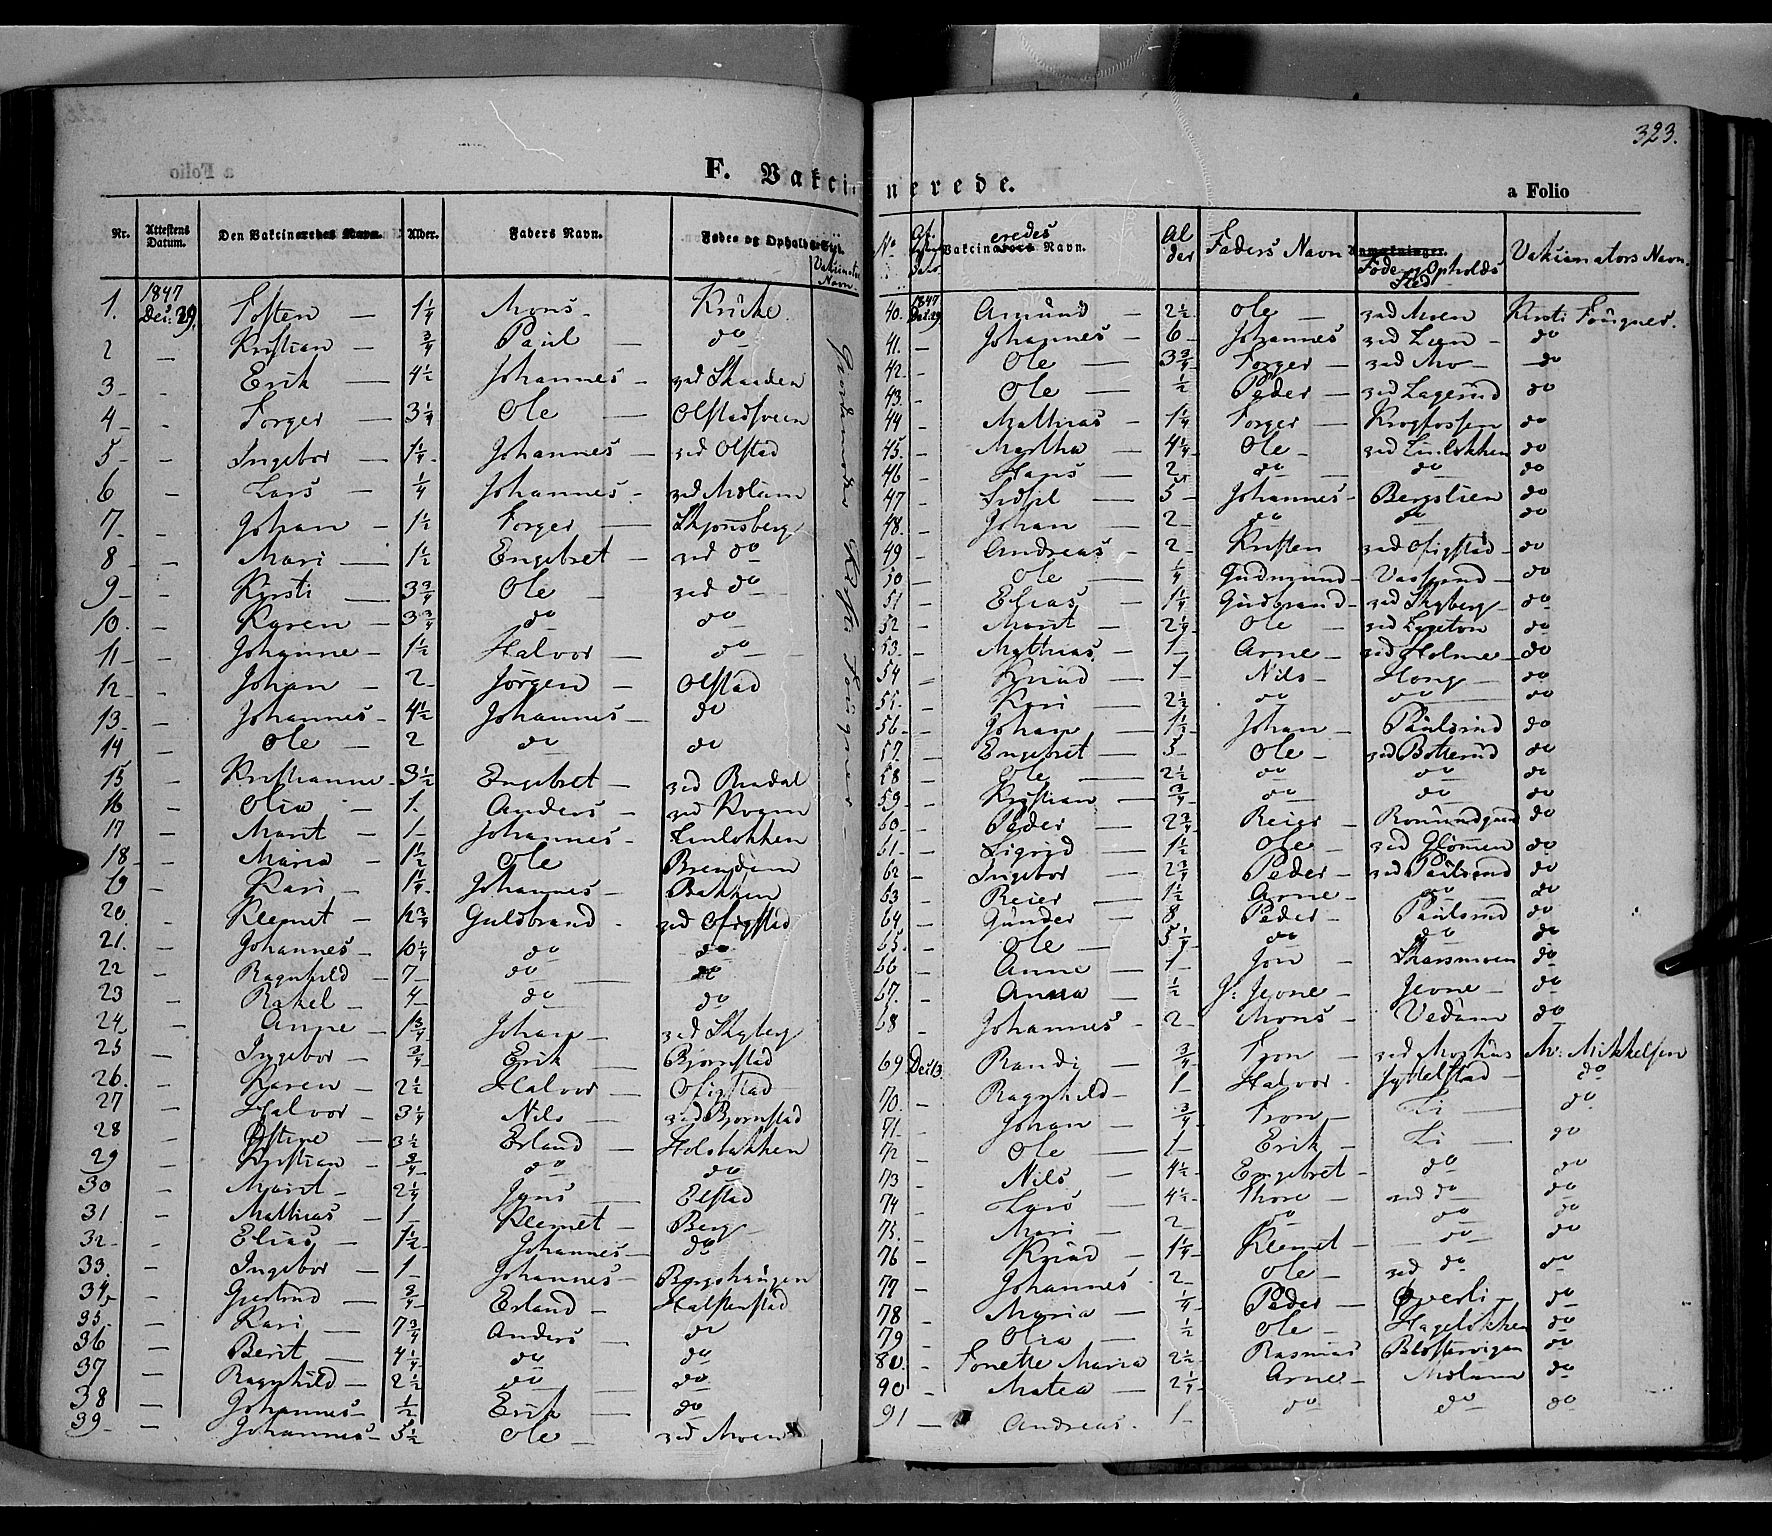 323.
F. Vakcinerede.
a Folio
Nr. Attestens Datum. Den Vakcineredes Navn. Alder. Faders Navn. Føde- og Opholds-Sted. Vakcinators Navn.
1. 1847 Dec. 29. Tosten — 1 1/4 Mons —
2 — Kristian — 3/4 Paul — do
3 — Erik — 4 1/2 Johannes — ved Skaaden
4 — Torger — 3 1/4 Ole — Olstadsveen
5 — Ingebor — 1 1/4 Johannes — ved Olstad
6 — Lars — 1/4 Johannes —
7 — Johan — 1 1/2 Torger — Skjønsberg
8 — Mari — 1 1/2 Engebret — ved do
9 — Kirsti — 3 3/4 Ole — ved do
10. — Karen — 3 3/4 do do
11 — Johanne — 1 1/2 Halvor — do
12 — Johan — 2 Jørgen — Olstad
13 — Johannes — 4 1/2 Johannes — do
14 — Ole — 2 do do
15 — Kristianne — 3 1/2 Engebret — ved Bredal
16 — Olia — 1. Anders —
17 — Marit — 1 Johannes — Linløkken
18 — Maria — 1 1/2 Ole
19 — Kari — 1 1/4 Johannes — Bakken
20. — Klemet — Guldbrand — ved Ofigstad
21. — Johannes — 10 1/4 do do
22 — Ragnhild — 7 do do
23 — Rakel — 4 do do
24 — Anne — 1 3/4 Johan — ved Skyberg
25 — Ingebor — 3/4 Erik — Bjørnstad
26. — Karen — 2 1/2 Halvor — Ofigstad
27 — Halvor — 3 1/4 Nils — ved Bjørnstad
28 — 3 1/2 Erland —
29 — Kristian — 3/4 do do
30 — Marit — 2 1/4 Jens — Elstad
31 — Mathias — 1 Klemet — Berg
32 — Elias — 1 1/2 Johannes — do
33. — Ingebor — 1 Johannes — Bergshaugen
34 — Gjertrud — 3/4 Erland — Halstenstad
35. — Kari — 7 3/4 Anders — do
36 — Berit — 4 1/4 do do
37 — Ragnhild — 2 1/2 do do
38 — Johannes — 1/2 Erik — do
39 — Johannes — 5 1/2 Ole — ved Moen
Kirsti Fougner
No Vakcineredes Navn. Alder Faders Navn Føde og Opholds Sted Vakcinators Navn.
40. 1847 Dec. 29 Amund — 2 1/2 Ole — ved Moen Kirsti Fougner.
41. — Johannes — 6 Johannes ved Lien — do
42. — Ole — 3 3/4 Torger — ved Mo — do
43. — Ole — 1/2 Peder — ved Lagerud do
44 — Mathias — 1 1/4 Torger — Krogfossen do
45. — Martha — 4 1/4 Ole — ved Linløkken do
46 — Hans — 2 do do do
47 — 5 Johannes — Bergslien do
48. — Johan — 2 do do do
49 — Andreas — 2 Kristen ved Ofigstad — do
50 — Ole — 1/4 Gudmund — do
51 — Elias — 1 1/4 Gudbrand — ved Skyberg — do
52 — Marit — 2 1/4 Ole — do
53. — Mathias — 1 Arne — ved Holme — do
54 — Knud — 1 Nils — Hong — do
55. — Kari — 2 1/2 do do do
56. — Johan — 1 1/2 Johan — Paulsrud do
57. — Engebret — Ole — ved Botterud do
58 — Ole — 2 1/2 do do do
59. — Kristian — 3/4 do do do
60 — Peder — 2 3/4 Reier — Romundgaard do
61 — Sigrid — 1 1/2 Ole — ved Glomen do
62 — Ingebor — 2 3/4 Peder — ved Paulsrud do
63 — Reier — 1 1/2 Arne — do do
64 — Gunder — 8 Peder — Paulsrud do
65. — Ole — 5 1/4 do do do
66 — Anne — 1 Jon — do
67. — Anna — 1/2 J: Jevne — Jevne — do
68 — Johannes — 2 Mons — Vedum do
69 Dec. 13. Randi — 3/4 Tron — M: Mikkelsen
70. — Ragnhild — 1 Halvor. do
71 — Johan — 3/4 Tron — Li — do
72 — Ole — 1 Erik — Li — do
73 — Nils — 4 1/2 Engebret — do do
74 — Lars — 4 1/2 Thore — ved do do
75. — Mari — 2 do do do
76 — Knud — 1 1/4 Klemet — do do
77 — Johannes 2 Ole — ved do do
78 — Maria — 1/4 Peder — Øverli — do
79 — Olia — 1/2 Ole — Hageløkken do
80. — Tonette Maria 2 1/2 Rasmus do
90 — Matea — 2 1/4 Arne — do
91 — Andreas. 1 do do do